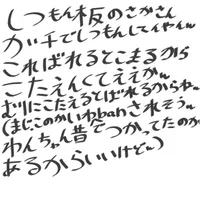 しつもん板のさかさん
ガチでしつもんしてイヤイヤw
こればれるとこまるから
こたえんくてええがw
むりにこたえるとばれるからねw
(まじこのかいわbanされそうw
わんちゃん昔でつかってたのが
あるからいいけどw)